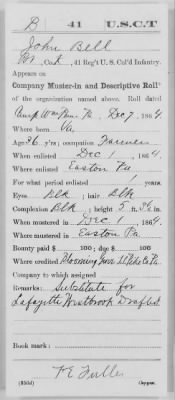 B | 41 | U.S.C.T
John Bell
Pvt, Co. B, 41 Reg't U. S. Col'd Infantry.
Appears on
Company Muster-in and Descriptive Roll*
of the organization named above. Roll dated
Camp Wm Penn Pa, Dec 7, 1864.
Where born Va.
Age 36 y'rs; occupation Farmer
When enlisted Dec 1, 1864.
Where enlisted Easton Pa
For what period enlisted 1 years.
Eyes Blk; hair Blk
Complexion Blk; height 5 ft. in.
When mustered in Dec 1, 1864.
Where mustered in Easton Pa.
Bounty paid $ 100; due $ 100
Where credited Blooming Pike Co Pa
Company to which assigned
Remarks: Substitute for
Lafayette Westbrook Drafted
Book mark:
Fuller
(356d) Copyist.